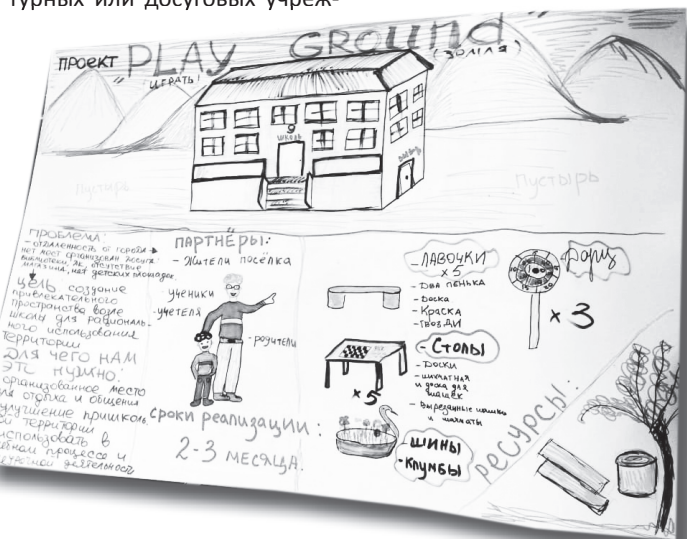 турных или досуговых учреж-
проект "PLAY GROUND"
играть!
(земля)
школа
Пустырь
Пустырь
ПРОБЛЕМА:
- отдаленность от города →
нет мест организации досуга:
библиотеки, ДК, отсутствие
магазина, нет детских площадок.
ЦЕЛЬ: создание
привлекательного
пространства возле
школы для рациональ-
ного использования
территории
Для чего нам
это нужно:
организованное место
для отдыха и общения
улучшение пришколь.
ой территории
использовать в
ебном процессе и
деятельности
ПАРТНЁРЫ:
- Жители посёлка
- ученики
- учителя
- родители
Сроки реализации:
2-3 месяца.
- ЛАВОЧКИ
x 5
- Два пенька
- Доска
- Краска
- Гвозди
- Столы
x5
- Доски
- шахматная
и доска для
шашек
- Вырезанные шашки
и шахматы
- шины
- клумбы
100
Дартс
x 3
РЕСУРСЫ: